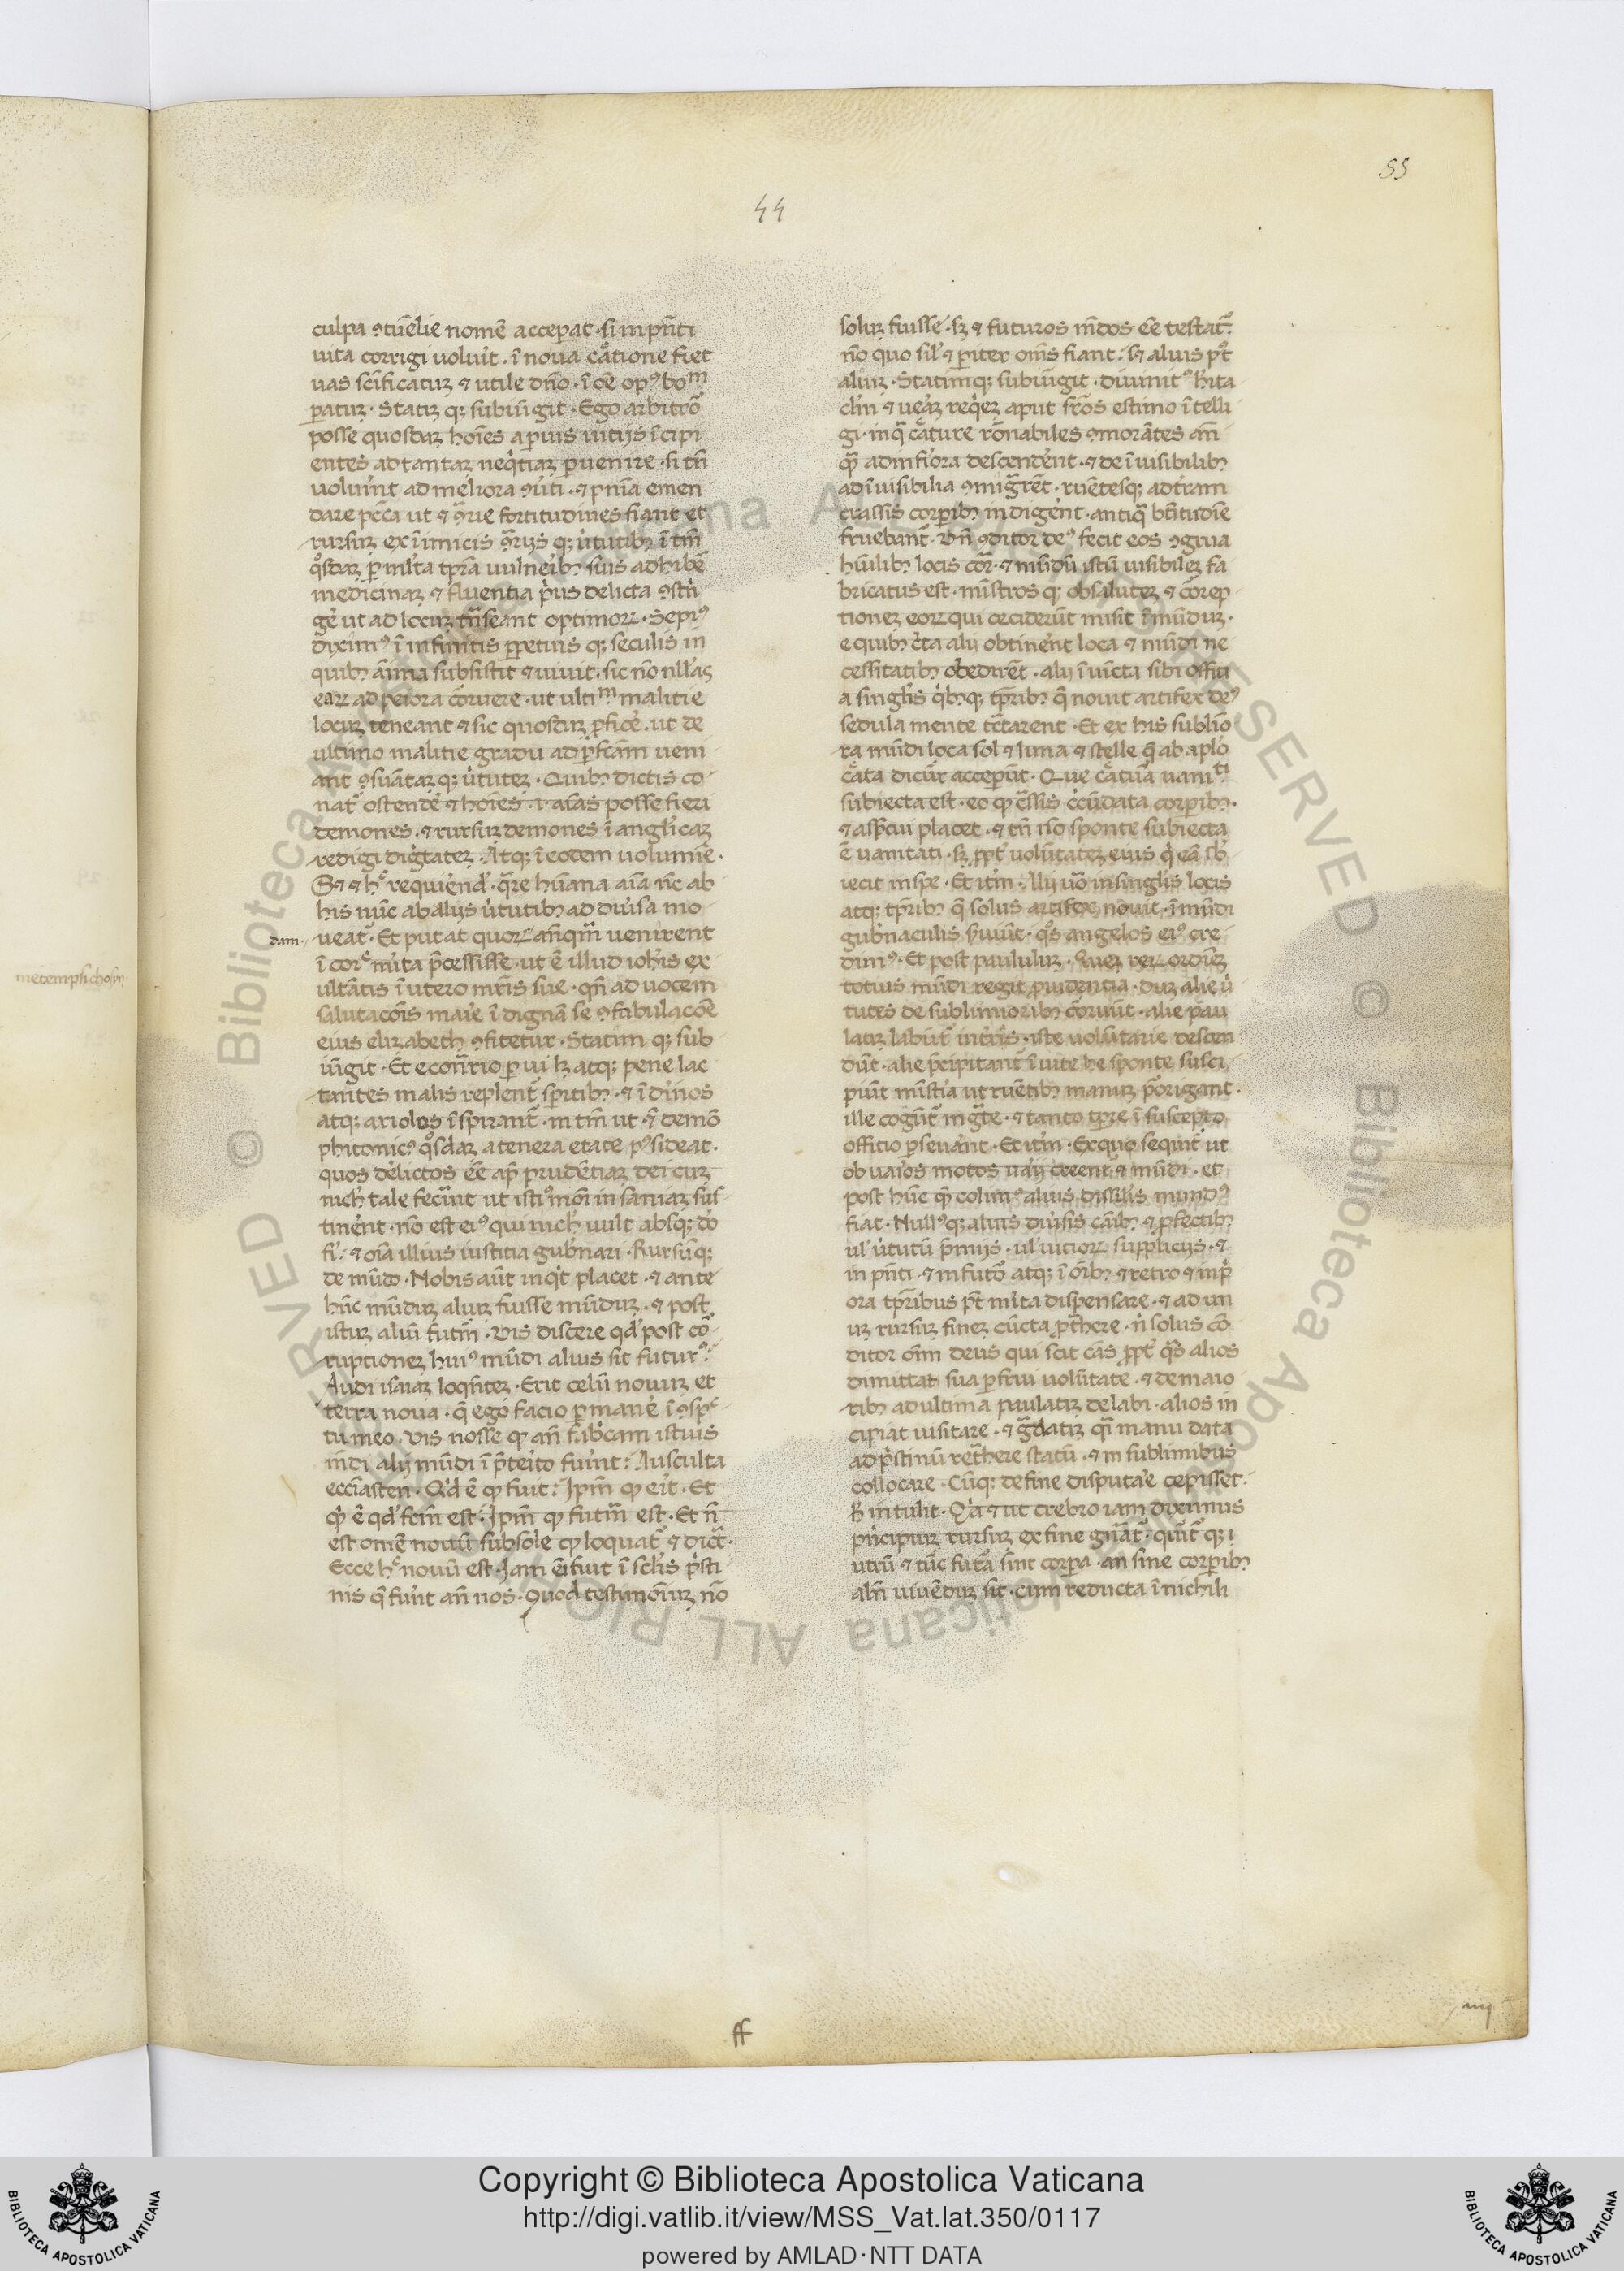 55
44
culpa ꝯtūelie nomē acceꝑat · si in pn̄ti
uita corrigi uoluit̉ · ī noua
uas sc̄ificatuꝫ ⁊ utile dn̄o · ī oē opꝰ boᵐ
ꝑatuꝫ · Statiꝫ qꝫ subiūgit · Ego arbitroꝛ̄
posse quosdaꝫ hoīes a ꝑuis uitijs īcipi
entes ad tantaꝫ neq̇tiaꝫ ꝑuenire · si tn̄
uoluerīt ad meliora
dare pcc̄a ut ⁊ fortitudines fiant et
rursuꝫ ex īimicis
ꝑ ml̉ta tꝑa uulneribꝫ suis adhibē
medicinaꝫ ⁊ fluentia delicta
ut ad locuꝫ tn̄seant optimoꝝ · Sepiꝰ
diximꝰ ī infinitis ꝑpetuis qꝫ seculis in
quibꝫ āīma subsistit ⁊ uiuit · sic nō nll̉as
eaꝝ ad peiora coruere · ut ultiᵐ malitie
locuꝫ teneant ⁊ sic quosdaꝫ ꝓfice̓ · ut de
ultimo malitie gradu ad ueni
ant ꝯsūataꝫ qꝫ u̓tuteꝫ · Quibꝫ dictis co
nat᷑ ostende̓ ⁊ hoīes · i · aīas posse fieri
demones · ⁊ rursuꝫ demones ī angl̓icaꝫ
redigi dig̓tateꝫ · Atqꝫ ī eodem uolumīe ·
requirend̓ · q̄re hūana aīa nc̄ ab
his nūc ab alijs u̓tutibꝫ ad diu̓sa mo
dam · ueat᷑ · Et putat quoꝝ anq̄m̄ uenirent
ī corꝑe m̉ita p̄cessisse · ut ē illud ioh̄is ex
ultātis ī utero mr̄is sue · qn̄ ad uocem
salutacōis marie īdignā se ꝯfabulacōe
eius elizabeth ꝯfitetur · Statim qꝫ sub
iūgit · Et econtrio paruuli lꝫ atqꝫ pene lac
tantes malis replent᷑ sꝑitibꝫ · ⁊ ī diuinos
atqꝫ ariolos īspirant᷑ · in tm̄ ut ⁊ demō
phitonicꝰ quosdaꝫ a tenera etate possideat ·
quos de̓lictos eē ap̄ prudētiaꝫ dei cuꝫ
nich̓ tale fecerint ut istiꝰmōi insaniaꝫ sus
tine̓nt · nō est eiꝰ qui nich̓ uult absqꝫ dō
fi̓ · ⁊ oīa illius iustitia gub̓nari · Rursūqꝫ
de mūdo · Nobis aūt inq̓t placet · ⁊ ante
hūc mūduꝫ aliuꝫ fuisse mūduꝫ · ⁊ post
istuꝫ aliū futm̄ · Vis discere qd̓ post cō
ruptioneꝫ huiꝰ mūdi alius sit futurꝰ ·
Audi isaiaꝫ loqn̄teꝫ · Erit celū nouuꝫ et
terra noua · q̄ ego facio ꝑmane̓ ī ꝯspᶜ
tu meo · Vis nosse ꝙ an̄ fab̓cam istius
mūdi alij mūdi ī p̄terito fueri̓nt : Ausculta
eccīasten · Qd̓ ē ꝙ fuit : Ipm̄ ꝙ erit · Et
ē qd̓ fcm̄ est · Ipm̄ ꝙ futm̄ est · Et n̄
est omē nouū sub sole ꝙ loquat᷑ ⁊ dicat ·
Ecce hᶜ nouū est · Jam enī fuit ī scl̓is p̓sti
nis q̄ fue̓rt an̄ nos · Quod testimoniuꝫ nō
soluꝫ fuisse · sꝫ ⁊ futuros mūdos eē testat᷑ ·
nō quo sil̓ ⁊ ꝑiter om̄s fiant · sꝫ alius pꝰt
aliuꝫ · Statimqꝫ subiūgit · Diuinitꝰ h̓ita
cl̓m ⁊ ueraꝫ req̓eꝫ aput sr̄os estimo ītelli
gi · inq̄ c̄ature rōnabiles ꝯmorātes an̄
q̄ꝫ ad infi̓ora descende̓rnt · ⁊ de īuisibilibꝫ
ad uisibilia ꝯmigra̓rēt · ruētesqꝫ ad tr̄am
crassis corꝑibꝫ indige̓rent · antiq̄ btītudīe
fruebant᷑ · Vn̄ ꝯditor deꝰ fecit eos ꝯgrua
hūilibꝫ locis · ⁊ mūdū istū uisibileꝫ fa
bricatus est · mīstros qꝫ ob saluteꝫ ⁊ correp
tioneꝫ eoꝝ qui ceciderūt misit ī mūduꝫ ·
e quibꝫ cer̓ta alij obtine̓rent loca ⁊ mūdi ne
cessitatibꝫ obedirēt · alij īiūcta sibi offiti
a singl̓is q̓bꝫqꝫ tꝑribꝫ q̄ nouit artifex deꝰ
sedula mente tc̄tarent · Et ex his sublio
ra mūdi loca sol ⁊ luna ⁊ stelle q̄ ab aplo
c̄ata dicūt᷑ acceperūt · Que c̄atura uaniᵗⁱ
subiecta est · eo ꝙ c̄ssis corꝑibꝫ ·
⁊ placet · ⁊ tn̄ nō sponte subiecta
ē uanitati · sꝫ ꝓpt̓ uolūtateꝫ eius q̓ eā sb̓
iecit in spe · Et itm̄ : Alij uō in singl̓is locis
atqꝫ tꝑribꝫ q̄ solus artifex nouit · ī mūdi
gub̓naculis s̓uiūt · q̓s angelos eiꝰ cre
dimꝰ · Et post paululuꝫ · Queꝫ reꝝ ordineꝫ
totius mūdi regit prouidentia · duꝫ alie u̓
tutes de sublimioribꝫ corruūt · alie pau
latiꝫ labūt᷑ · iste uolūtarie descen
dūt · alie p̄cipitant᷑ īuite he sponte susci
piūt mīst̓ia ut ruētibꝫ manuꝫ porrigant ·
ille cogūt᷑ ingr̄te · ⁊ tanto tꝑre ī suscepto
offitio ꝑseue̓rant · Et itm̄ · Ex quo sequit᷑ ut
ob ua̓ios motos uarij creent᷑ ⁊ mūdi · et
post hūc quem colimꝰ alius dissil̓is mundꝰ
fiat · Nullꝰqꝫ alius diu̓sis cāibꝫ ⁊ ꝓfectibꝫ
ul̓ u̓tutū p̄mijs · ul̓ uicioꝝ suppliciis · ⁊
in pn̄ti · ⁊ in futo᷑ atqꝫ ī om̄ibꝫ ⁊ retro ⁊ inp̓
ora tꝑribus pt̄ m̓ita dispensare · ⁊ ad un
uꝫ rursuꝫ fineꝫ cūcta ꝑt̓here · n̓ solus cō
ditor om̄m deus qui scit cās ꝓpt̓ q̓s alios
dimittat sua ꝑfrui uolūtate · ⁊ de maio
ribꝫ ad ultima paulatiꝫ delabi · alios in
cipiat uisitare · ⁊ gr̄datiꝫ q̄si manu data
ad p̓stinū ret̄here statū · ⁊ in sublimibus
collocare · Cūqꝫ de fine disputare cepisset ·
h̄ intulit · Q̓a ⁊ ut crebro iam diximus
pn̓cipiuꝫ rursuꝫ ex fine gn̄at᷑ · querit᷑ qꝫ ·
utrū ⁊ tūc fut̄a sint corpora · an sine corꝑibꝫ
aln̄ uiuēduꝫ sit · cum redacta ī nichili
metempsichosyn
ff
iiij
© Biblioteca Apostolica Vaticana ALL RIGHTS RESERVED
Copyright © Biblioteca Apostolica Vaticana
http://digi.vatlib.it/view/MSS_Vat.lat.350/0117
powered by AMLAD·NTT DATA
BIBLIOTECA APOSTOLICA VATICANA
BIBLIOTECA APOSTOLICA VATICANA